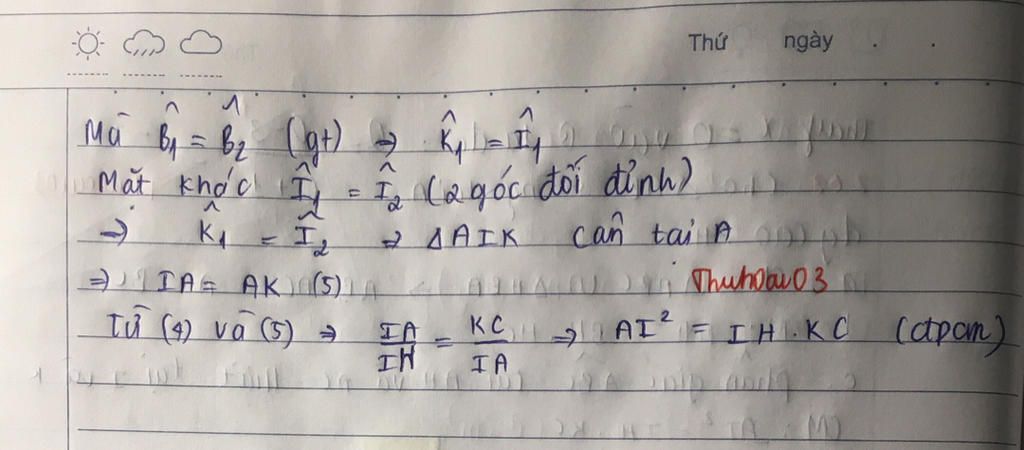 Thứ ngày . .
Mà B̂₁ = B̂₂ (gt) ⇒ K̂₁ = Î₁
Mặt khác Î₁ = Î₂ (2 góc đối đỉnh)
⇒ K̂₁ = Î₂ ⇒ ΔAIK cân tại A
⇒ IA = AK (5) Thuhoai03
Từ (4) và (5) ⇒ IA/IH = KC/IA ⇒ AI² = IH . KC (đpcm)